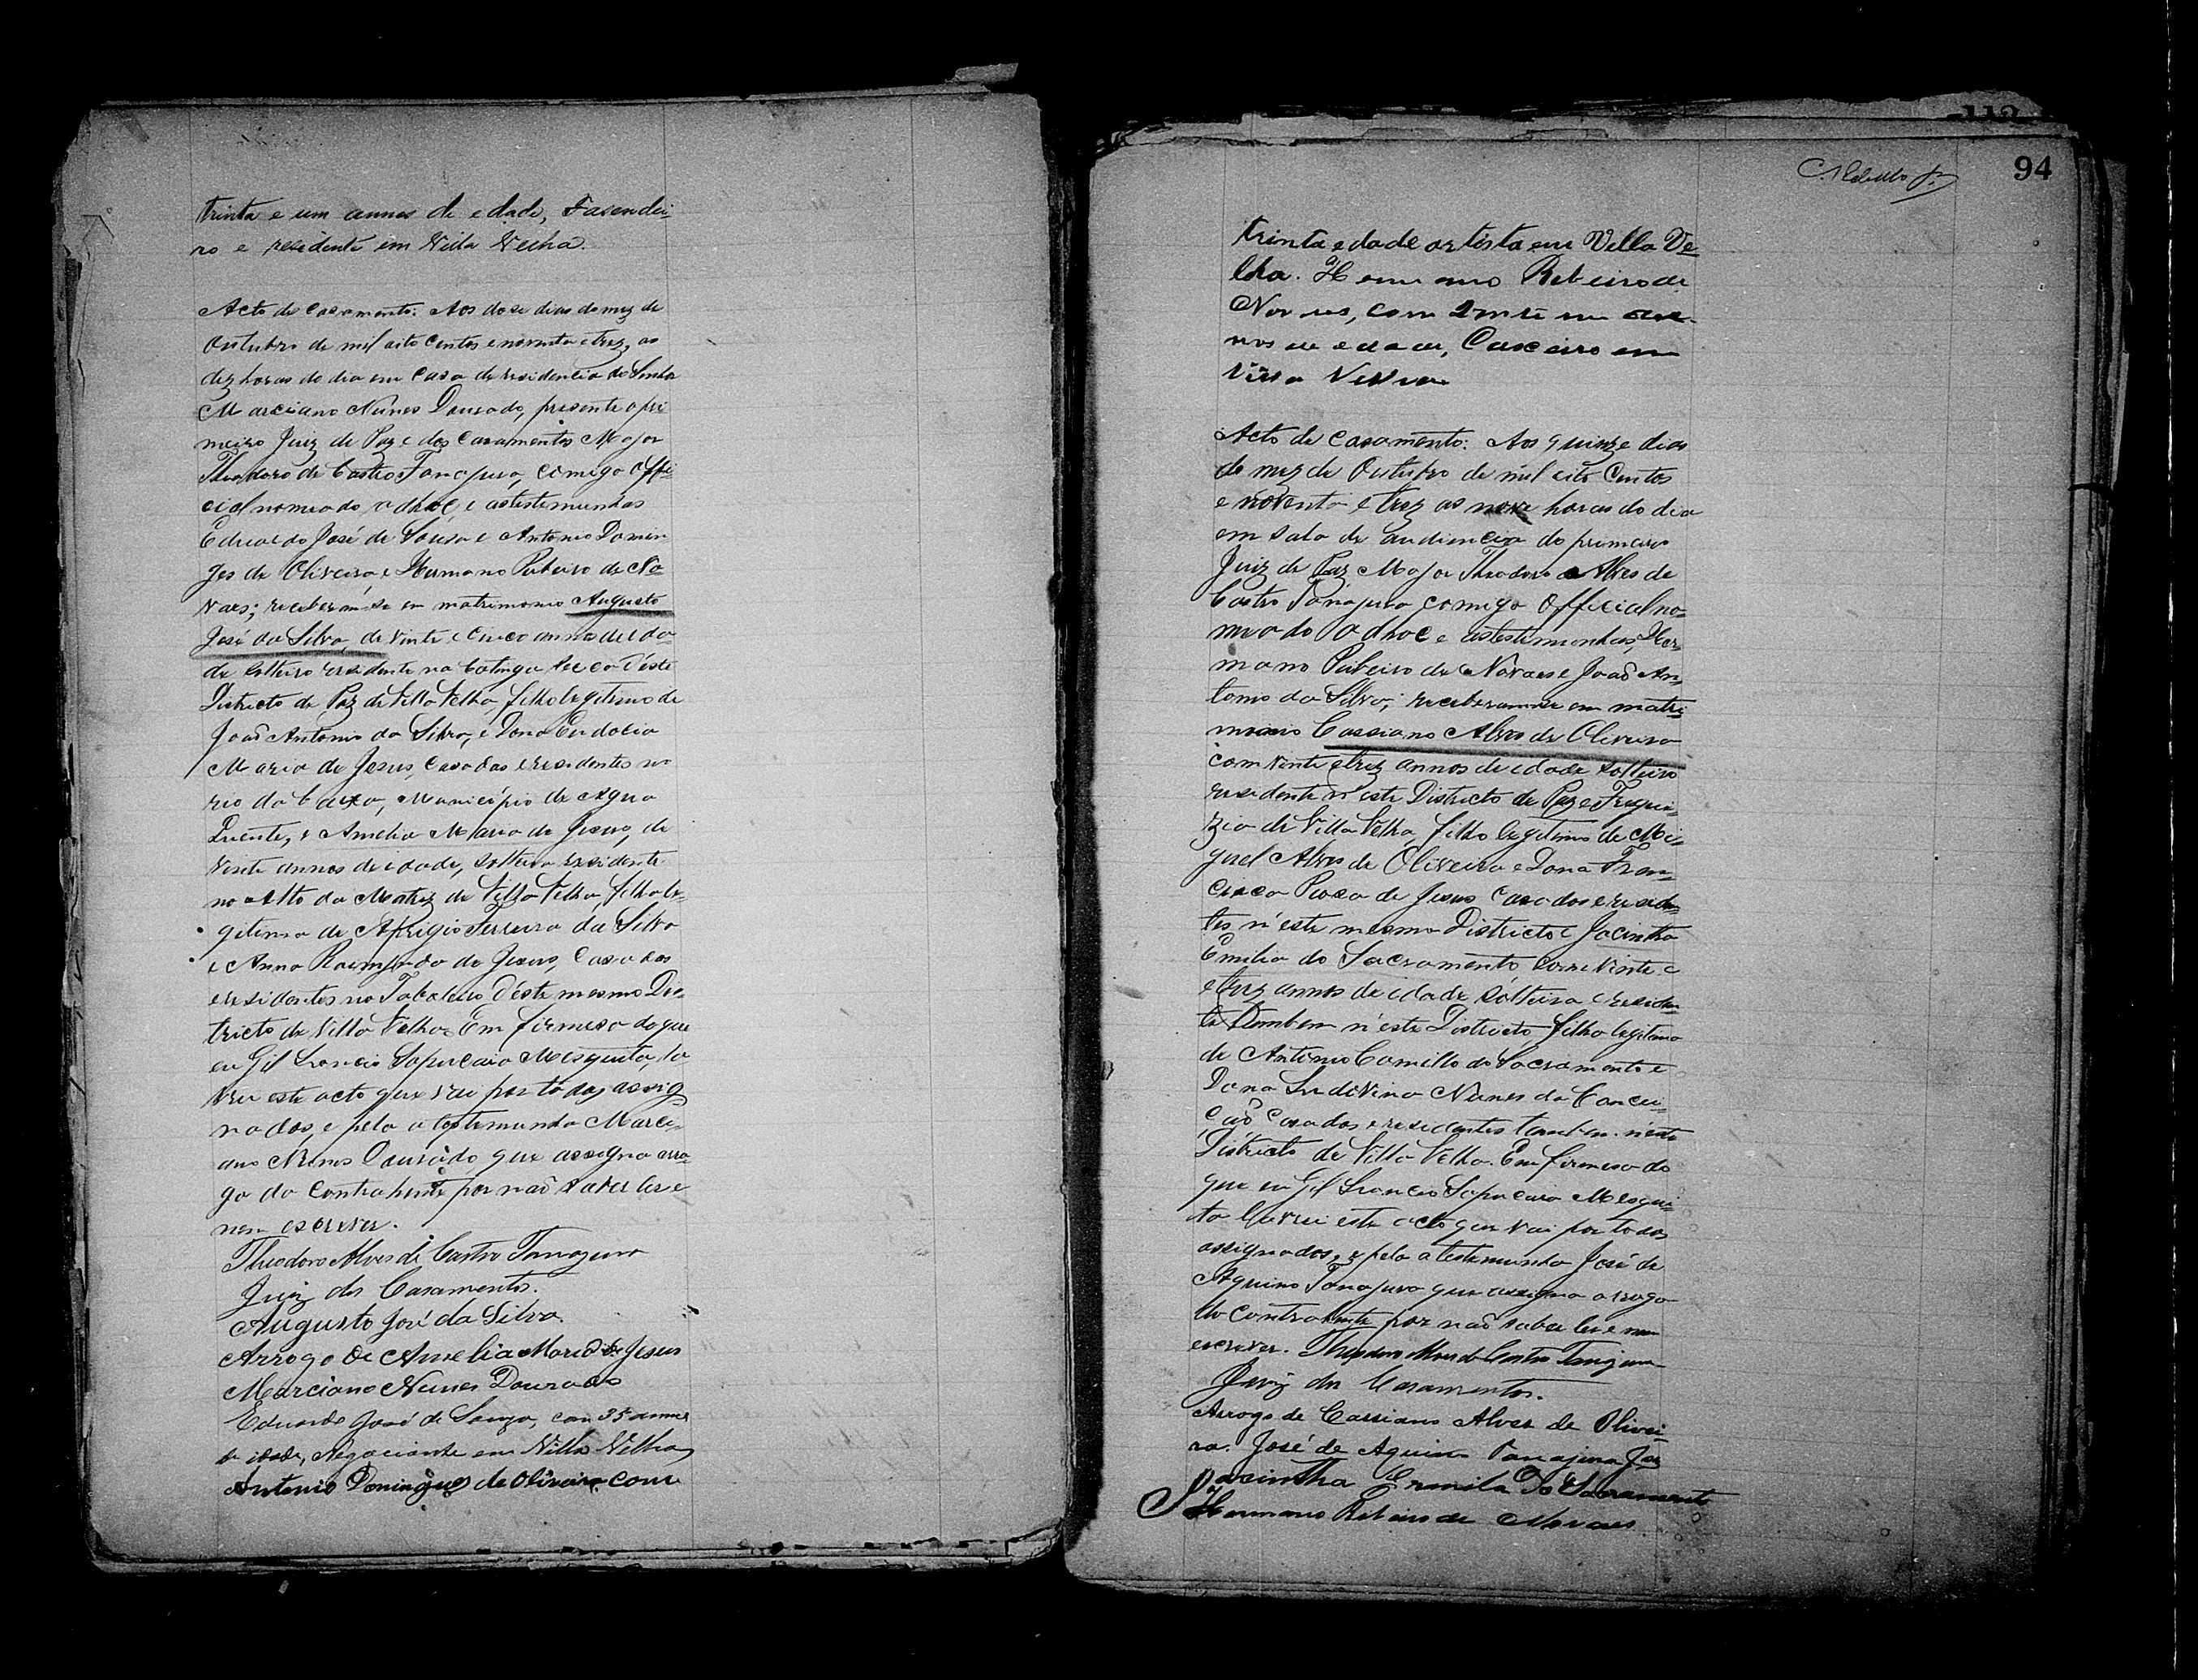 trinta e um annos de edade, Fasendei-
ro e residente em Villa Velha.
Acto de casamento. Aos dose dias do mez de
Outubro de mil oito centos e noventa e trez, as
dez horas do dia em casa de residencia do Senhor
Marciano Nunes Dourado, presente o pri
meiro Juiz de Paz e dos Casamentos Major
Theodoro de Castro Tanajura, comigo offi-
cial nomeado adhoc e as testemunhas
Eduardo José de Sousa e Antonio Domin
ges de Oliveira e Hermano Ribeiro de No-
vaes; receberam-se em matrimonio Augusto
José da Silva, de vinte e cinco annos de eda-
de solteiro residente na Catinga Secca d'este
Districto de Paz de Villa Velha, filho legitimo de
João Antonio da Silva, e Dona Eudocia
Maria de Jesus, casados e residentes no
rio da Caixa, Municipio de Agua
Quente, e Amelia Maria de Jesus, de
vinte annos de edade, solteira residente
no Alto da Matriz de Villa Velha, filha le-
gitima de Aprigio Ferreira da Silva
e Anna Raimunda de Jesus, casados
e residentes no Taboleiro d'este mesmo Dis-
tricto de Villa Velha. Em firmesa do que
eu Gil Francis Sapucaia Mesquita, la
vrei este acto que vai por todos assig-
nados, e pela a testemunha Marci-
ano Nunes Dourado, que assigna arro-
go da contrahente por não saber ler e
nem escrever.
Theodoro Alves de Castro Tanajura
Juiz dos Casamentos.
Augusto José da Silva.
Arrogo de Amelia Maria de Jesus
Marciano Nunes Dourado
Eduardo José de Souza, com 35 annos
de idade, Negociante em Villa Velha,
Antonio Domingues de Oliveira com
112
94
trinta edade artista em Villa Ve
lha. Hermano Ribeiro de
Novaes, com
nos de edade, Caxeiro em
Villa Velha
Acto de Casamento: Aos quinze dias
do mez de Outubro de mil oito centos
e noventa e trez as nove horas do dia
em sala de audiencia do primeiro
Juiz de Paz Major Theodoro Alves de
Castro Tanajura comigo Official no-
meado adhoc e as testemunhas, Her-
mano Ribeiro de Novaes e João An-
tonio da Silva; receberam-se em matri-
monio Cassiano Alves de Oliveira
com vinte e trez annos de edade solteiro
residente n'este Districto de Paz e Fregue-
zia de Villa Velha, filho legitimo de Mi-
guel Alves de Oliveira e Dona Fran-
cisca Rosa de Jesus casados e residen-
tes n'este mesmo Districto e Jacintha
Emilia do Sacramento com vinte e
e trez annos de edade solteira e residen
te tambem n'este Districto, filha legitima
de Antonio Camillo do Sacramento e
Dona Ludivina Nunes da Concei-
ção casados e residentes tambem n'este
Districto de Villa Velha. Em firmesa do
que eu Gil Francis Sapucaia Mesqui-
ta lavrei este acto que vai por todos
assignados, e pela a testemunha José de
Aquino Tanajura que assigna arrogo
do contrahente por não saber ler e nem
escrever. Theodoro Alves de Castro Tanajura
Juiz dos Casamentos.
Arrogo de Cassiano Alves de Olivei-
ra. José de Aquino Tanajura
Jacintha Ermila do Sacramento
Hermano Ribeiro de Novaes